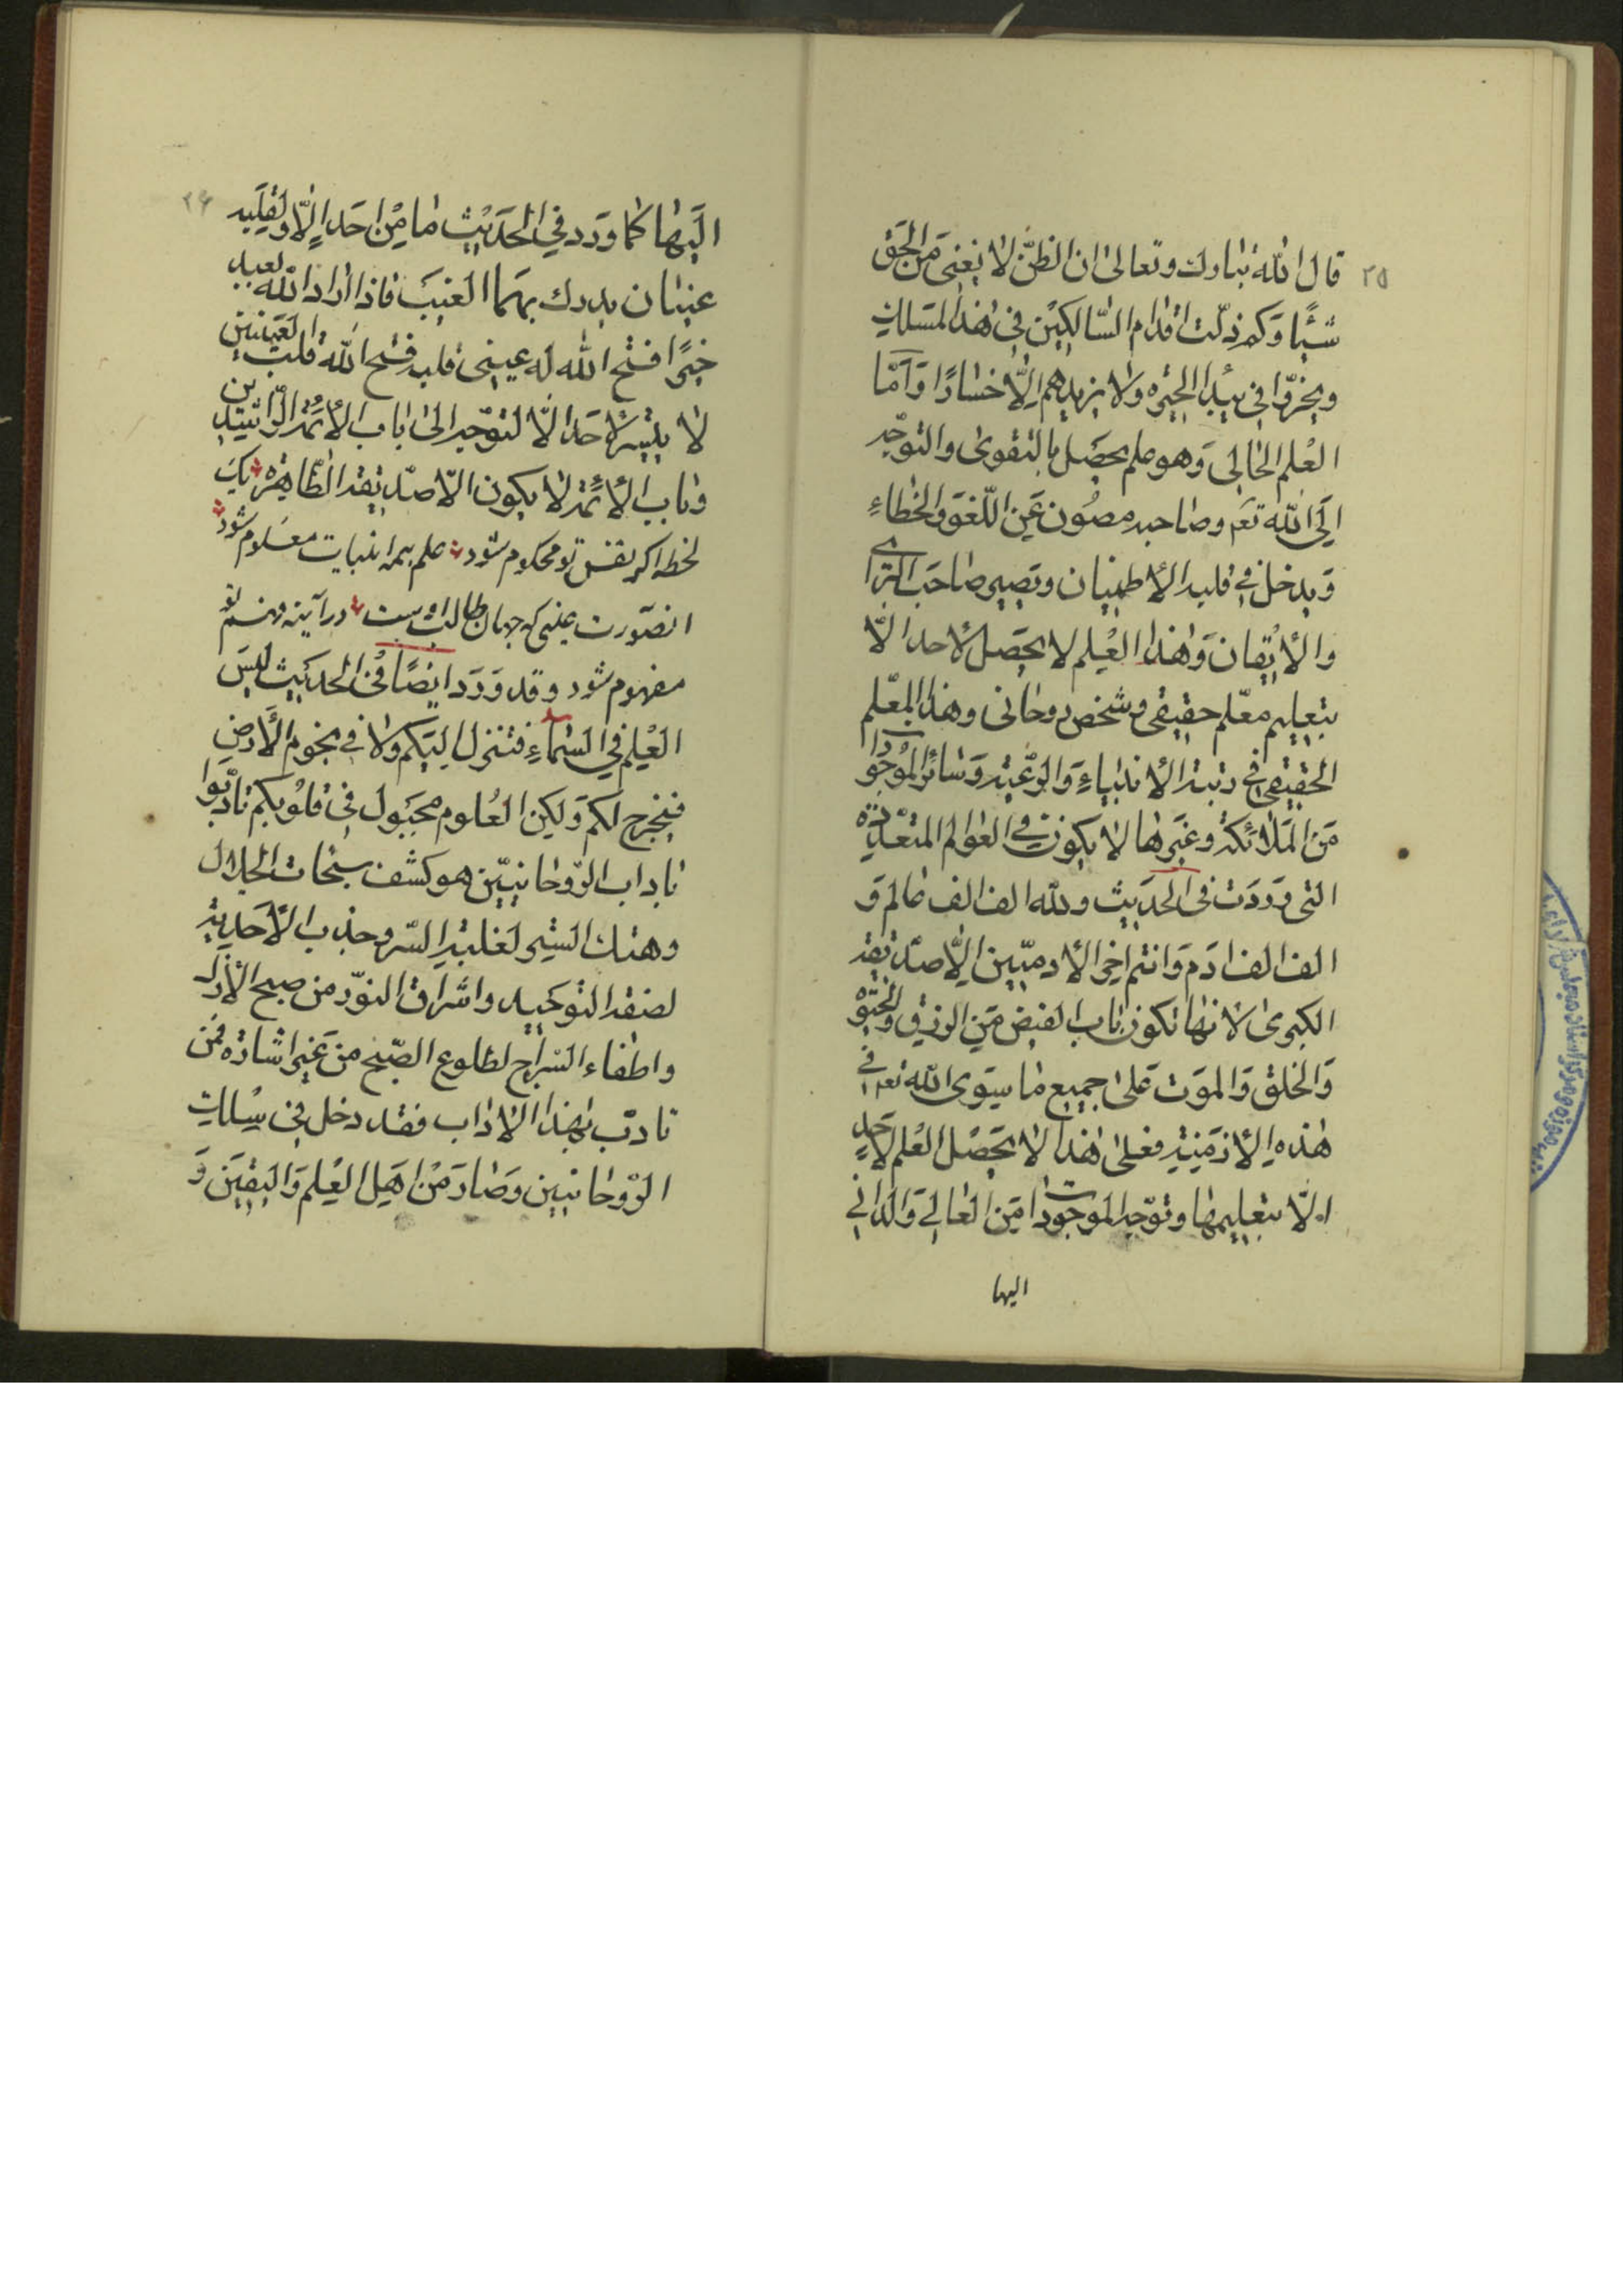 ٢٥
قال الله تبارك وتعالى ان الظن لا يغنى من الحق
شيئًا وكم زلّت اقدام السّالكين فى هذا المسلك
فى بيداء الحيره ولا يزيدهم الّا خسارًا وَامّا
العلم الحالى وهو علم يحصل بالتقوى والتوجّه
الى الله تعم وصاحبه مصون عن اللّغو والخطاءِ
ويدخل فى قلبه الأطمينان ويصير صاحب
والأيقان وهذا العلم لا يحصل لأحد الّا
بتعليم معلّم حقيقى وشخص روحانى وهذا المعلّم
الحقيقى فى رتبة الأنبياء والرّعيّة وسائر الموجودات
من الملائكة وغيرها لا يكون فى العوالم المتعدّدة
التى وردت فى الحديث ولله الف الف عالم وَ
الف الف ادم وانتم اخر الأدميّين الّا صدّيقة
الكبرى لانها تكون باب الفيض من الرزق والحيوة
والخلق والموت على جميع ما سوى الله تعم فى
هذه الأزمنة فعلى هذا لا يحصل العلم لأحدٍ
الّا بتعليمها وتوجّه الموجودات من العالى والدانى
اليها
٢٦
اليها كما ورد فى الحديث ما من احد الّا ولقلبه
عينان يدرك بهما الغيب فاذا اراد الله لعبد
خيرًا فتح الله له عينى قلبه فتح الله قلب والعينين
لا يتيسّر لأحد الّا لتوجّه الى باب الأئمّة الرّاشدين
وباب الأئمّة لا يكون الّا صدّيقة الطّاهره يك
لحظه اكر نفس تو محكوم شود علم همه انبيات معلوم شود
انصورت غيبى كه جهان طالب اوست در آينه فهم تو
مفهوم شود وقد وَرَد ايضًا فى الحديث ليس
العلم فى السّماءِ فتنزل اليكم ولا فى تخوم الأرض
فتخرج لكم ولكن العلوم مجبول فى قلوبكم تادّبوا
باداب الرّوحانيّين هو كشف سبحات الجلال
وهتك الستر لغلبة السّر وجذب الأحدية
لصفة التوحيد واشراق النوّر من صبح الأزل
واطفاء السّراج لطلوع الصّبح من غير اشارة فمن
تادّب بهذا الاداب فقد دخل فى سلك
الرّوحانيين وصار من اهل العلم واليقين وَ